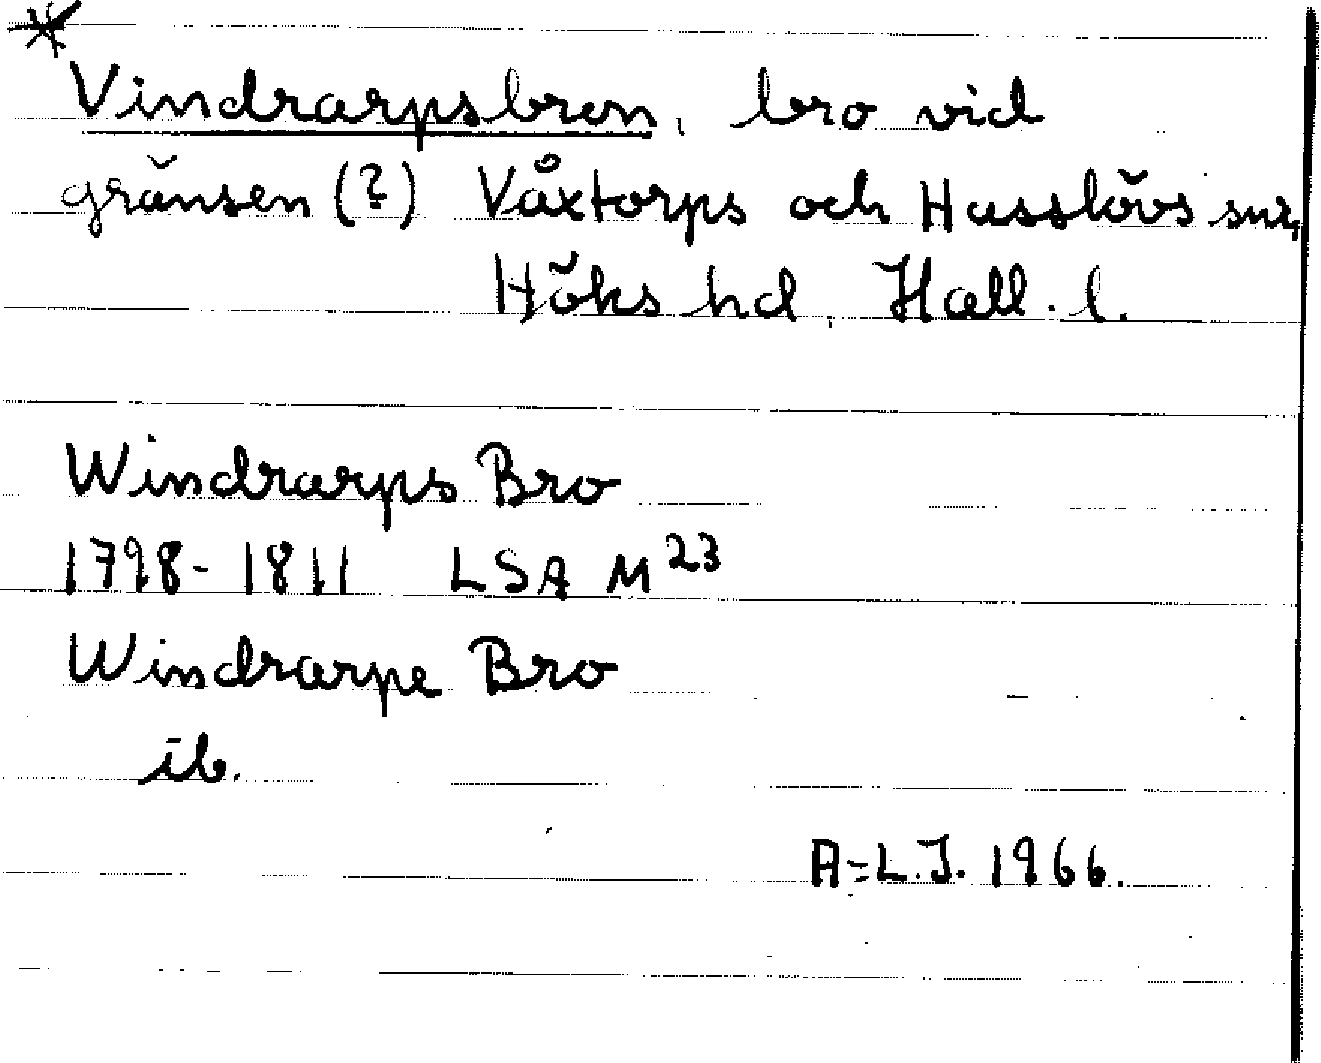 * Vindrarpsbron, bro vid
gränsen (?) Våxtorps och Hasslövs snr,
Höks hd, Hall. l.
Windrarps Bro
1798-1811 LSA M 23
Windrarpe Bro
ib.
A-L.J. 1966.